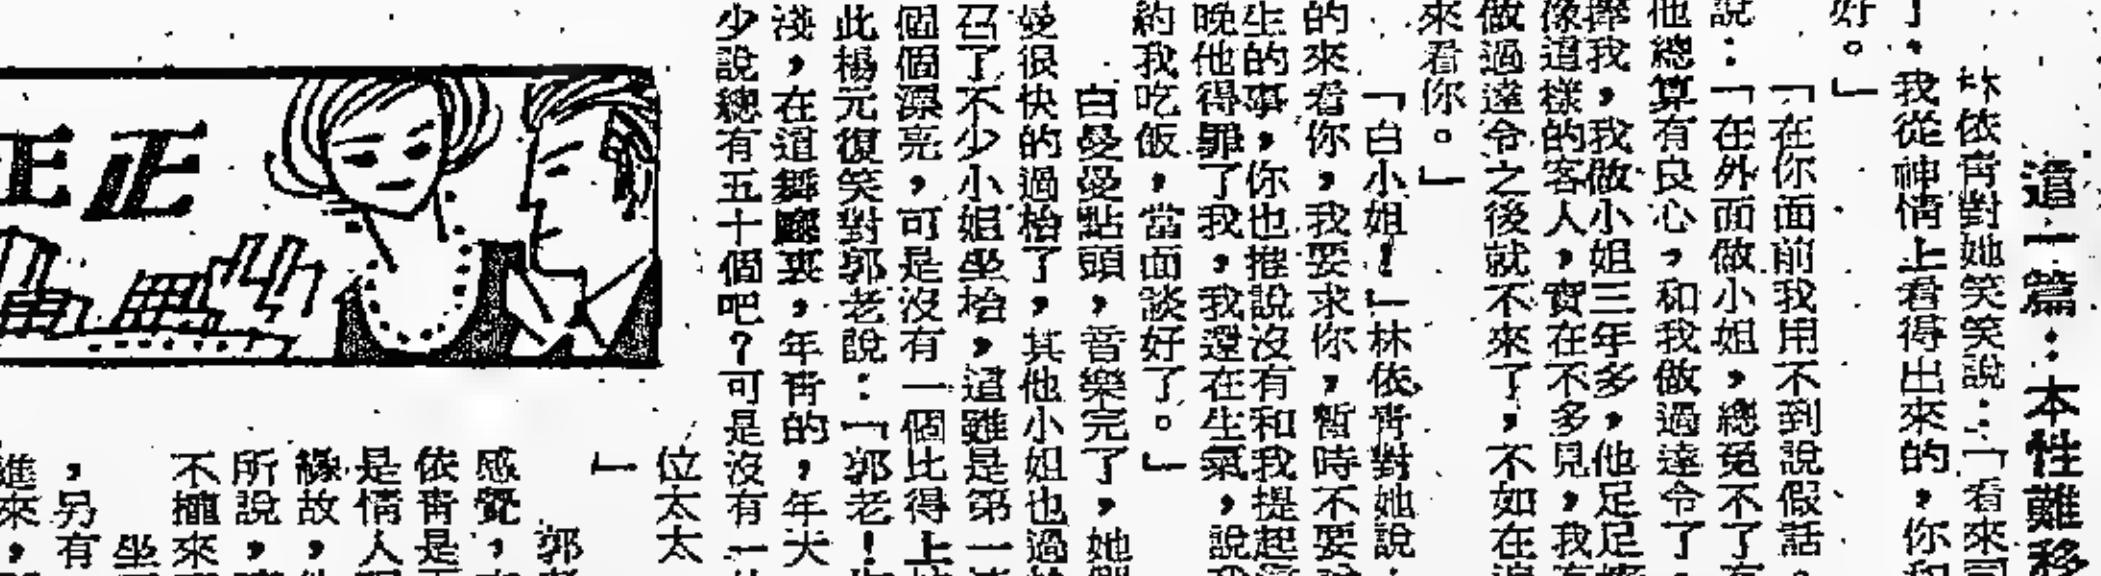 這一篇：本性難移
林依青對她笑笑說：「看來
了。我從神情上看得出來的，你和
好。」
「在你面前我用不到說假話。
說：「在外面做小姐，總免不了有
他總算有良心，和我做過達令了。
擇我，我做小姐三年多，他足足
像這樣的客人，實在不多見，我
做過達令之後就不來了，不如在
來看你。」
「白小姐！」林依青對她說：
的來看你，我要求你，暫時不要
生的事，你也推說沒有和我提起
晚他得罪了我，我還在生氣，說我
約我吃飯，當面談好了。」
白曼曼點頭，音樂完了，她
曼很快的過枱了，其他小姐也過
召了不少小姐坐枱，這雖是第一
個個漂亮，可是沒有一個比得上
此楊元復笑對郭老說：「郭老！
淺，在這舞廳裏，年青的，年大
少說總有五十個吧？可是沒有一
正正
位太太
」
郭
感覺，
依青是
是情人
緣故，
所說，
不攏來
坐
，另有
進來，